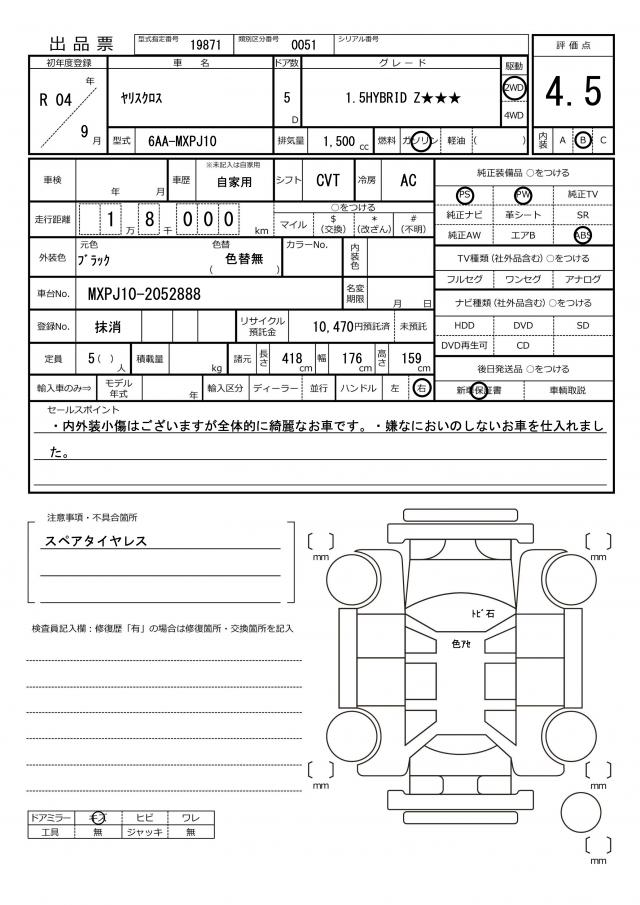 出品票 型式指定番号 19871 類別区分番号 0051 シリアル番号
初年度登録 車名 ドア数 グレード 駆動 評価点
R 04 年 9 月 ヤリスクロス 5 D 1.5HYBRID Z★★★ 2WD 4WD 4.5
型式 6AA-MXPJ10 排気量 1,500 cc 燃料 ガソリン 軽油 ( ) 内装 A B C
車検 年 月 車歴 ※未記入は自家用 自家用 シフト CVT 冷房 AC
走行距離 1 8 0 0 0 万 千 km ○をつける
マイル $ (交換) * (改ざん) # (不明)
外装色 元色 ブラック 色替 色替無 ( ) カラーNo. 内装色
車台No. MXPJ10-2052888 名変期限 月 日
登録No. 抹消 リサイクル預託金 10,470円預託済 未預託
定員 5 ( ) 人 積載量 kg 諸元 長さ 418 cm 幅 176 cm 高さ 159 cm
輸入車のみ⇒ モデル年式 年 輸入区分 ディーラー 並行 ハンドル 左 右
純正装備品 ○をつける
PS PW 純正TV
純正ナビ 革シート SR
純正AW エアB ABS
TV種類(社外品含む)○をつける
フルセグ ワンセグ アナログ
ナビ種類(社外品含む)○をつける
HDD DVD SD
DVD再生可 CD
後日発送品 ○をつける
新車保証書 車輌取説
セールスポイント
・内外装小傷はございますが全体的に綺麗なお車です。・嫌なにおいのしないお車を仕入れまし
た。
注意事項・不具合箇所
スペアタイヤレス
検査員記入欄:修復歴「有」の場合は修復箇所・交換箇所を記入
ドアミラー キズ ヒビ ワレ
工具 無 ジャッキ 無
mm mm
トビ石
色アセ
mm mm
mm